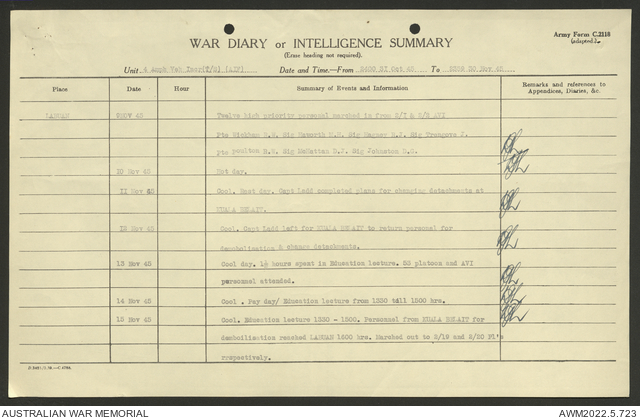 Army Form C.2118
(adapted).
WAR DIARY or INTELLIGENCE SUMMARY
(Erase heading not required).
Unit 4 Amph Veh (AIF) Date and Time.—From Oct 45 To 30 Nov 45
Place Date Hour Summary of Events and Information Remarks and references to Appendices, Diaries, &c.
LABUAN 9NOV 45 Twelve high priority personnel marched in from 2/1 & 2/3 AVI
Pte Wickham Sig Sig Wagner R.J. Sig J.
pte Sig D.J. Sig Johnston
10 Nov 45 Hot day.
11 Nov 45 Cool. Rest day. Capt Ladd completed plans for changing detachments at
KUALA BELAIT.
12 Nov 45 Cool. Capt Ladd left for KUALA BELAIT to return personnel for
demobilisation & change detachments.
13 Nov 45 Cool day. 1½ hours spent in Education lecture. SS platoon and AVI
personnel attended.
14 Nov 45 Cool . Pay day/ Education lecture from 1330 till 1500 hrs.
15 Nov 45 Cool. Education lecture 1330 - 1500. Personnel from KUALA BELAIT for
demobilisation reached LABUAN 1600 hrs. Marched out to 2/19 and 2/20 Pl's
respectively.
AUSTRALIAN WAR MEMORIAL
AWM2022.5.723